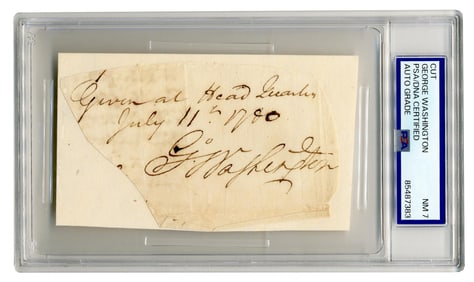 Given at Head Quarters
July 11th 1780.
Go Washington
CUT
GEORGE WASHINGTON
PSA/DNA CERTIFIED
AUTO GRADE
PSA
NM 7
85487383